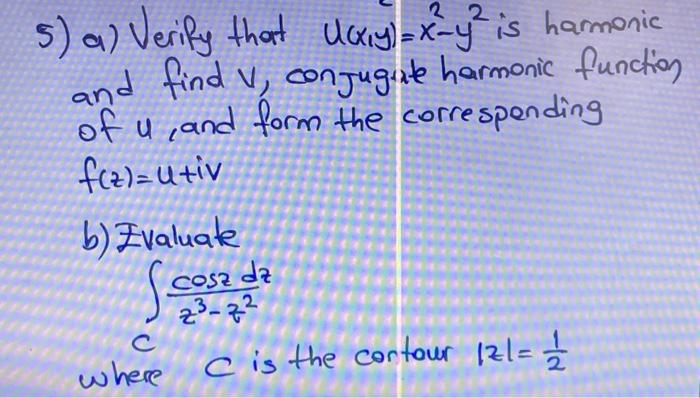 5) a) Verify that u(x,y)=x²-y² is harmonic
and find v, conjugate harmonic function
of u, and form the corresponding
f(z)=u+iv
b) Evaluate
∫ cosz dz / z³-z²
C
where C is the contour |z|= 1/2